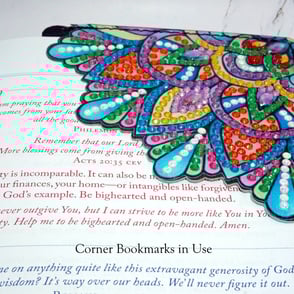 am praying that you
comes from your fai
—all the good
PHILEMON
Remember that our Lord J
More blessings come from giving tha
ACTS 20:35 CEV
ty is incomparable. It can also be m
ur finances, your home—or intangibles like forgiven
God's example. Be bighearted and open-handed.
ever outgive You, but I can strive to be more like You in Yo
ty. Help me to be bighearted and open-handed. Amen.
Corner Bookmarks in Use
me on anything quite like this extravagant generosity of God
wisdom? It's way over our heads. We'll never figure it out.